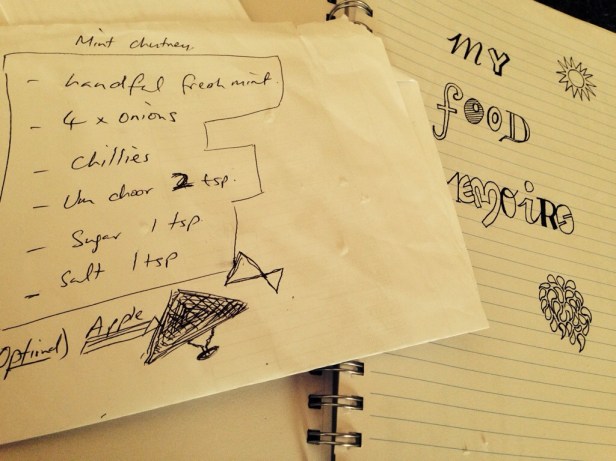 Mint chutney.
- handful fresh mint.
- 4 x onions
- chillies
- Um choor 2 tsp.
- Sugar 1 tsp
- Salt 1 tsp
Optional) Apple
MY
fOOD
MEMOiRS